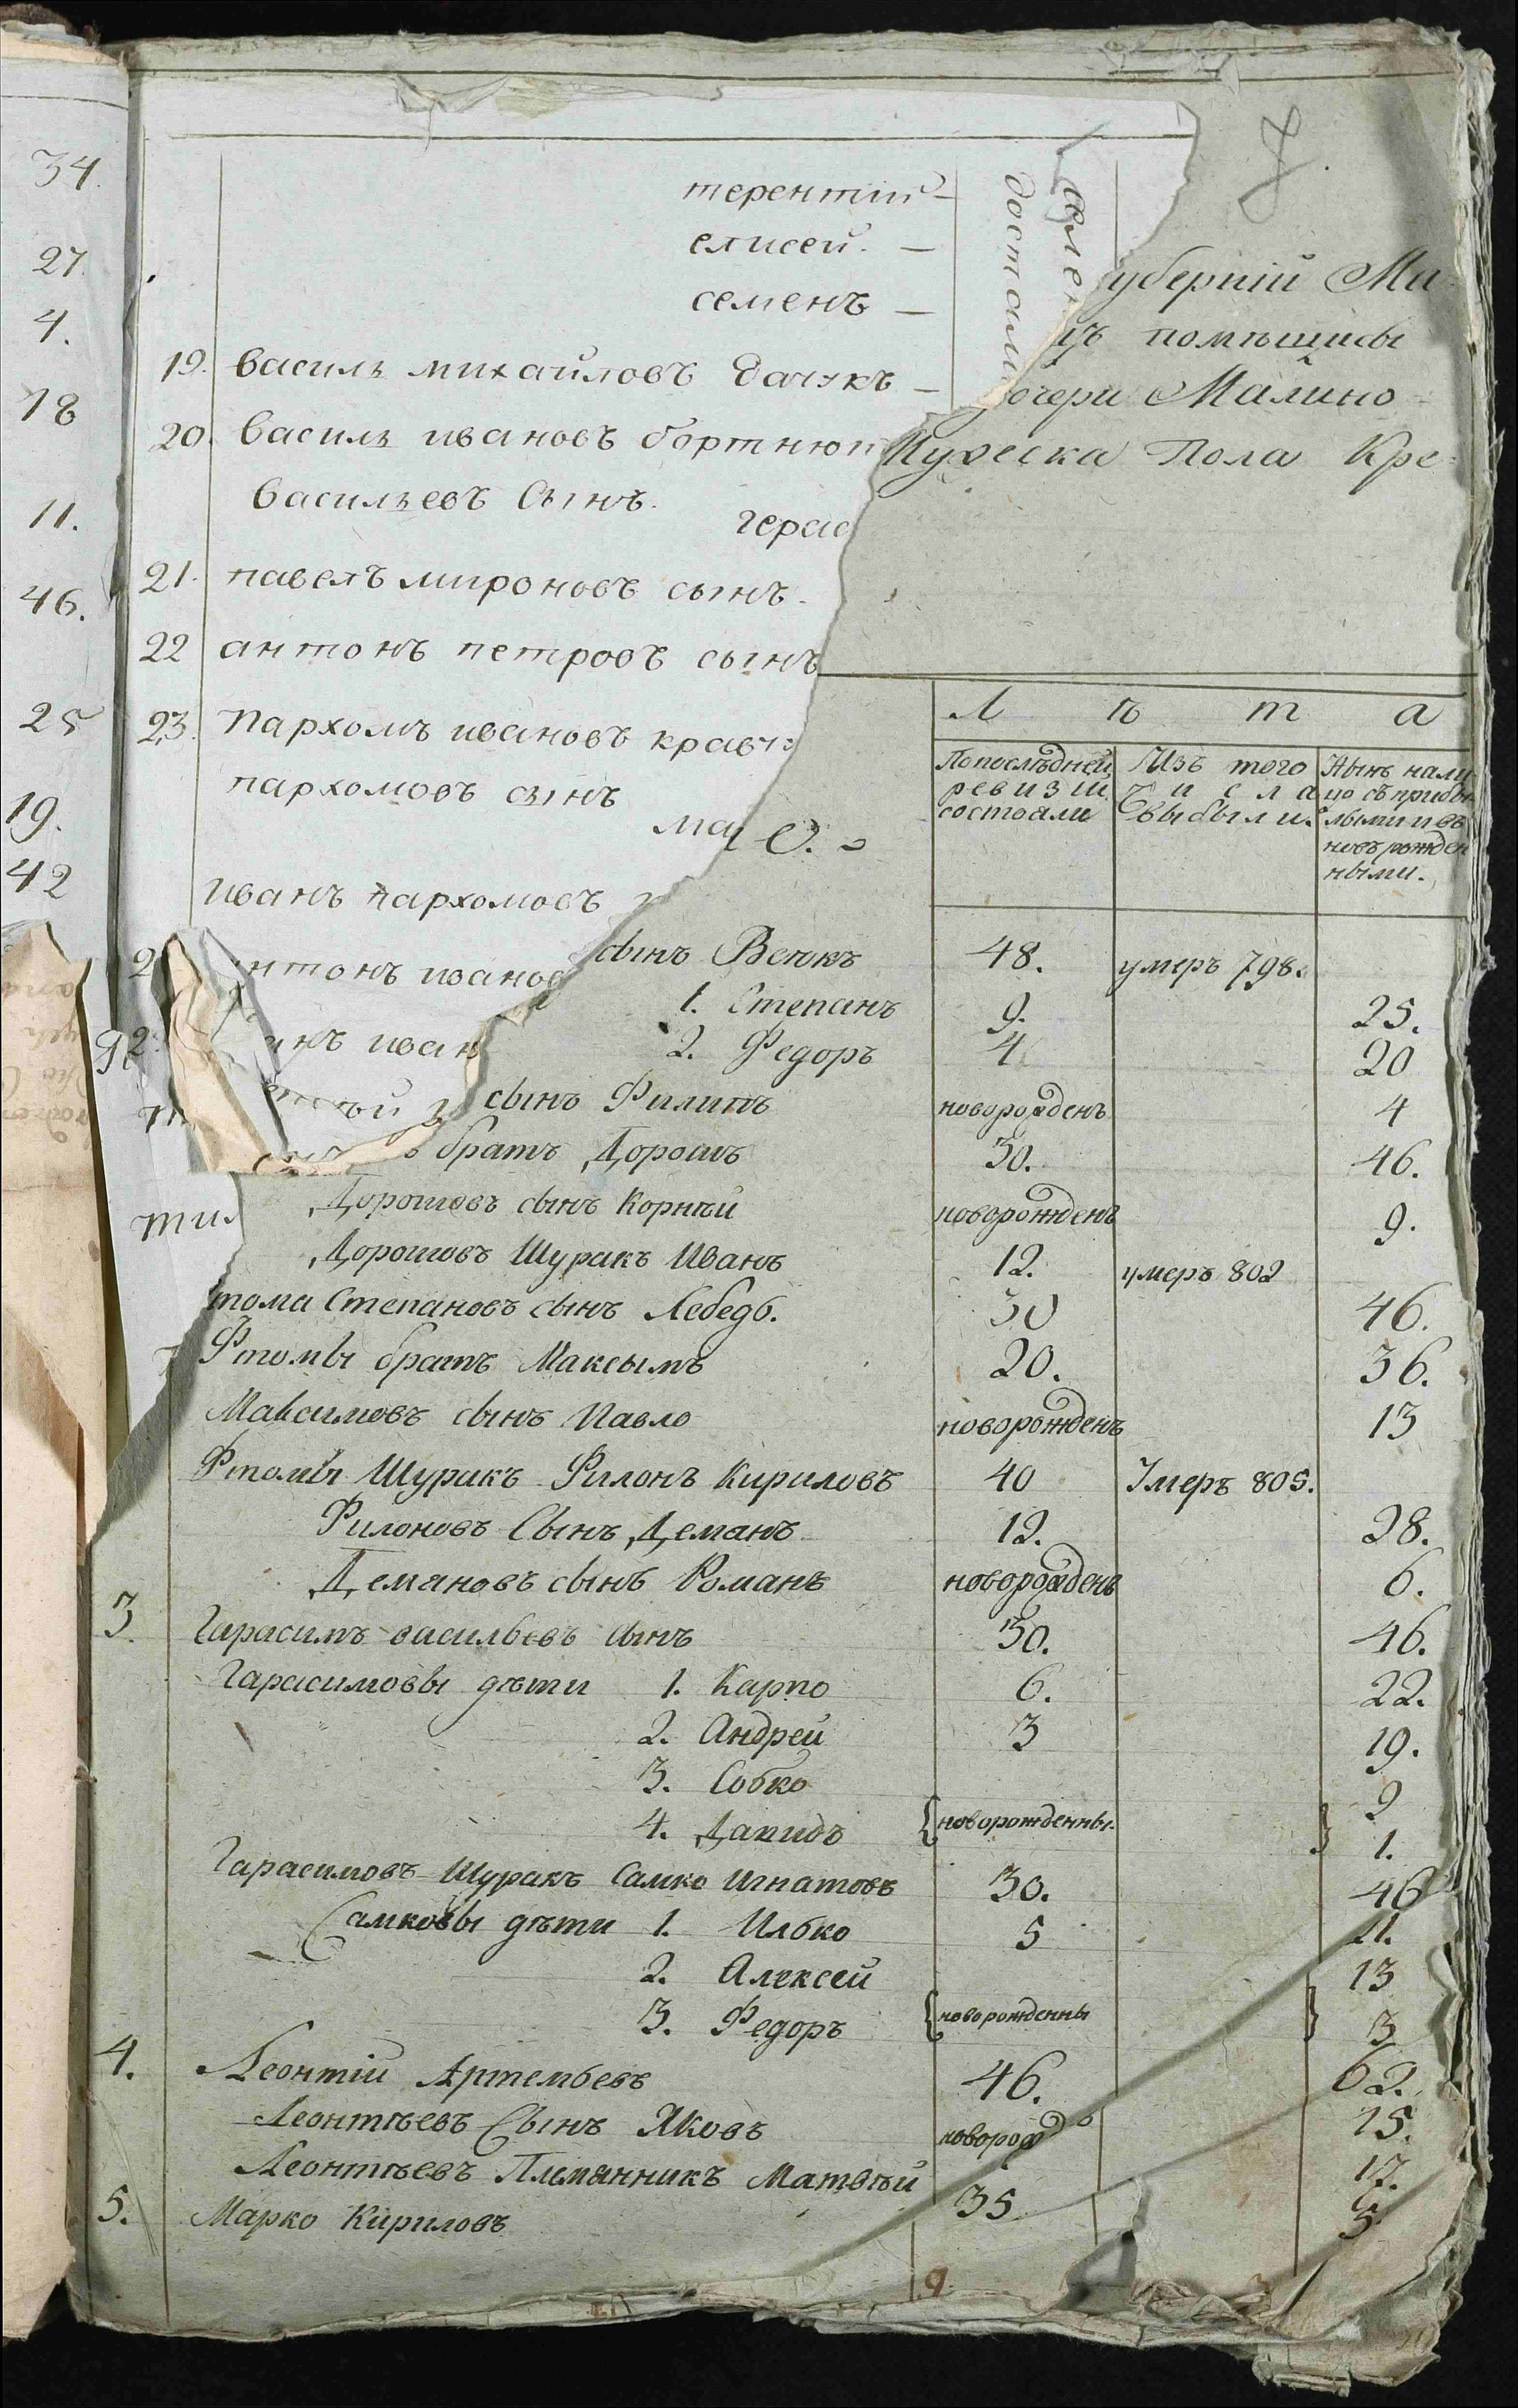 34.
27.
4.
18
11.
46.
25
19.
42
терентій —
елисей. —
семенъ —
19. василь михайловъ дачукъ —
20. василь ивановъ бортнюк
васильевъ сынъ.
герас
21. павелъ мироновъ сынъ.
22 антонъ петровъ сынъ
23. пархомъ ивановъ кравч
пархомовъ сынъ
иванъ пархомовъ
нтонъ иванов
7.
уберніи Ма
помѣщицы
очери Малино
Пола Кре
Л ѣ т а
Попослѣдней ревизіи состояли
Изъ того числа выбыли.
Нынѣ нали цо съ прибы лыми и въ новърожден ными.
сынъ Веюкъ 48. умеръ 798.
1. Степанъ 9. 25.
2. Федоръ 4 20
сынъ Филипъ новорожденъ 4
братъ Дорошъ 30. 46.
Дорошовъ сынъ Корнѣй новорожденъ 9.
Дорошовъ Шуракъ Иванъ 12. умеръ 802
тома Степановъ сынъ Лебедь. 30 46.
Фтомы братъ Максымъ 20. 36.
Максимовъ сынъ Павло новорожденъ 13
Фтомы Шурикъ Филонъ Кириловъ 40 Умеръ 805.
Филоновъ Сынъ Деманъ 12. 28.
Демановъ сынъ Романъ новорожденъ 6.
3. Гарасимъ васильевъ сынъ 30. 46.
Гарасимовы дѣти 1. Карпо 6. 22.
2. Андрей 3 19.
3. Собко 9
4. Данидъ новорожденны. 1.
Гарасимовъ Шуракъ Самко Игнатовъ 30. 46
Самковы дѣти 1. Илько 5 21.
2. Алексей 13
3. Федоръ новорожденны 3
4. Леонтій Артемьевъ 46. 62.
Леонтѣевъ Сынъ Яковъ новорож 15.
Леонтѣевъ Племянникъ Матвѣй 17.
5. Марко Кириловъ 35